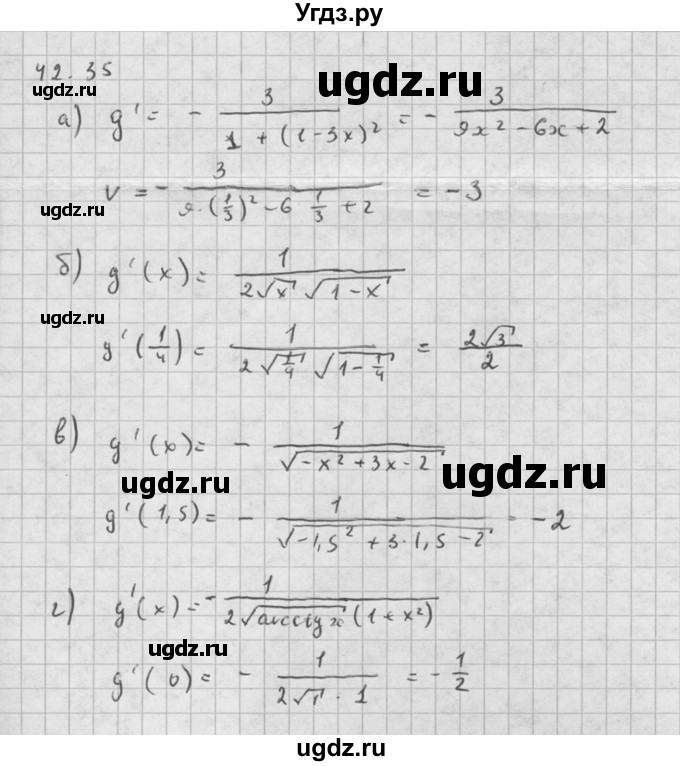 Угдз.ру
42.35
ugdz.ru ugdz.ru
а) g' = - 3 / (1 + (1-3x)²) = - 3 / (9x² - 6x + 2)
v = - 3 / (9·(1/3)² - 6 1/3 + 2) = -3
ugdz.ru ugdz.ru
б) g'(x) = 1 / (2√x √(1-x))
ugdz.ru ugdz.ru
g'(1/4) = 1 / (2√(1/4) √(1-1/4)) = 2√3 / 2
в) g'(x) = - 1 / √(-x² + 3x - 2)
ugdz.ru ugdz.ru
g'(1,5) = - 1 / √(-1,5² + 3·1,5 - 2) = -2
г) g'(x) = - 1 / (2√(arcctg x) (1 + x²))
ugdz.ru ugdz.ru
g'(0) = - 1 / (2√1 · 1) = - 1/2
ugdz.ru